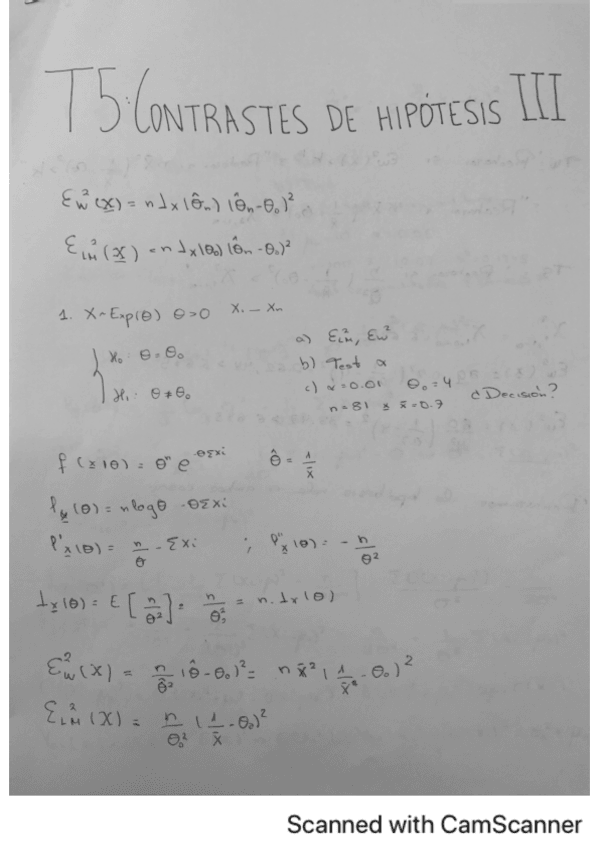 T5: CONTRASTES DE HIPÓTESIS III
ε²_W(x) = n I_x(θ̂_n) (θ̂_n - θ_0)²
ε²_LM(x) = n I_x(θ_0) (θ̂_n - θ_0)²
1. X~Exp(θ) θ>0 X_1 — X_n
H_0: θ = θ_0
H_1: θ ≠ θ_0
a) ε²_LM, ε_W²
b) Test α
c) α = 0.01 θ_0 = 4
n = 81 x̄ = 0.7 ¿Decisión?
f(x|θ) = θⁿ e^(-θΣxi) θ̂ = 1/x̄
l_x(θ) = n logθ - θΣxi
l'_x(θ) = n/θ - Σxi ; l''_x(θ) = - n/θ²
I_x(θ) = E[n/θ²] = n/θ²_0 = n. I_x(θ)
ε²_W(x) = n/θ̂² (θ̂ - θ_0)² = n x̄² (1/x̄ - θ_0)²
ε²_LM(x) = n/θ_0² (1/x̄ - θ_0)²
Scanned with CamScanner